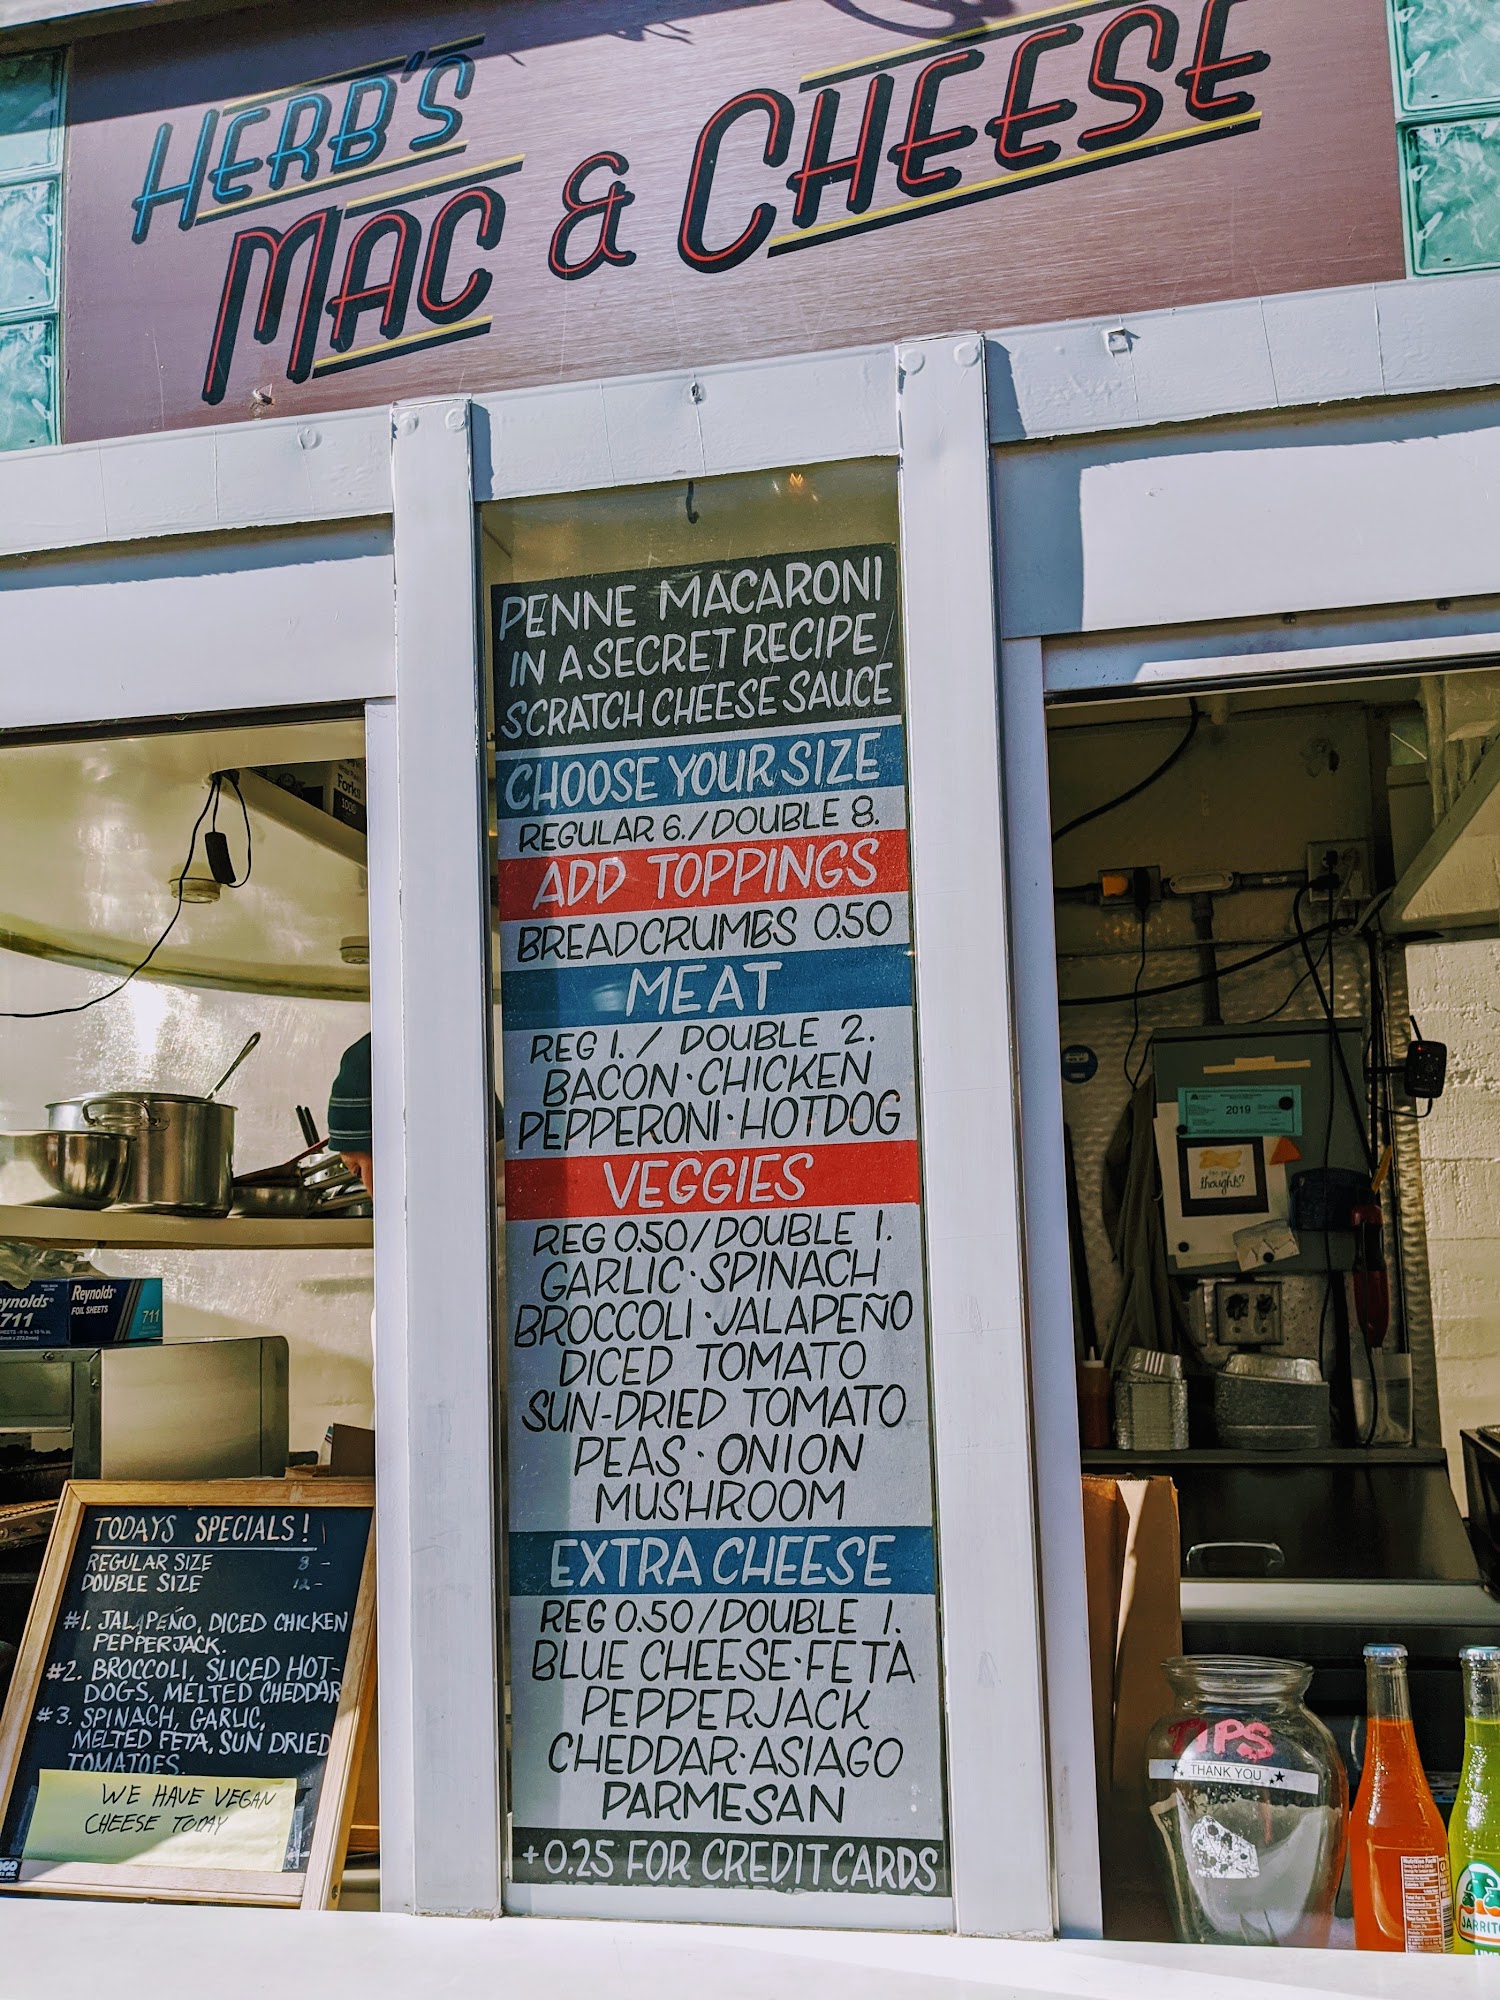 HERB'S
MAC & CHEESE
PENNE MACARONI
IN A SECRET RECIPE
SCRATCH CHEESE SAUCE
CHOOSE YOUR SIZE
REGULAR 6./DOUBLE 8.
ADD TOPPINGS
BREADCRUMBS 0.50
MEAT
REG 1. / DOUBLE 2.
BACON·CHICKEN
PEPPERONI·HOTDOG
VEGGIES
REG 0.50/DOUBLE 1.
GARLIC·SPINACH
BROCCOLI·JALAPEÑO
DICED TOMATO
SUN-DRIED TOMATO
PEAS·ONION
MUSHROOM
EXTRA CHEESE
REG 0.50/DOUBLE 1.
BLUE CHEESE·FETA
PEPPERJACK
CHEDDAR·ASIAGO
PARMESAN
+0.25 FOR CREDIT CARDS
Forks
1000
eynolds
711
Reynolds
FOIL SHEETS
711
TODAYS SPECIALS!
REGULAR SIZE 8 -
DOUBLE SIZE 12 -
#1. JALAPEÑO, DICED CHICKEN
PEPPERJACK.
#2. BROCCOLI, SLICED HOT-
DOGS, MELTED CHEDDAR
#3. SPINACH, GARLIC,
MELTED FETA, SUN DRIED
TOMATOES.
WE HAVE VEGAN
CHEESE TODAY
2019
thoughts?
TIPS
THANK YOU
Nutrition Facts
JARRIT